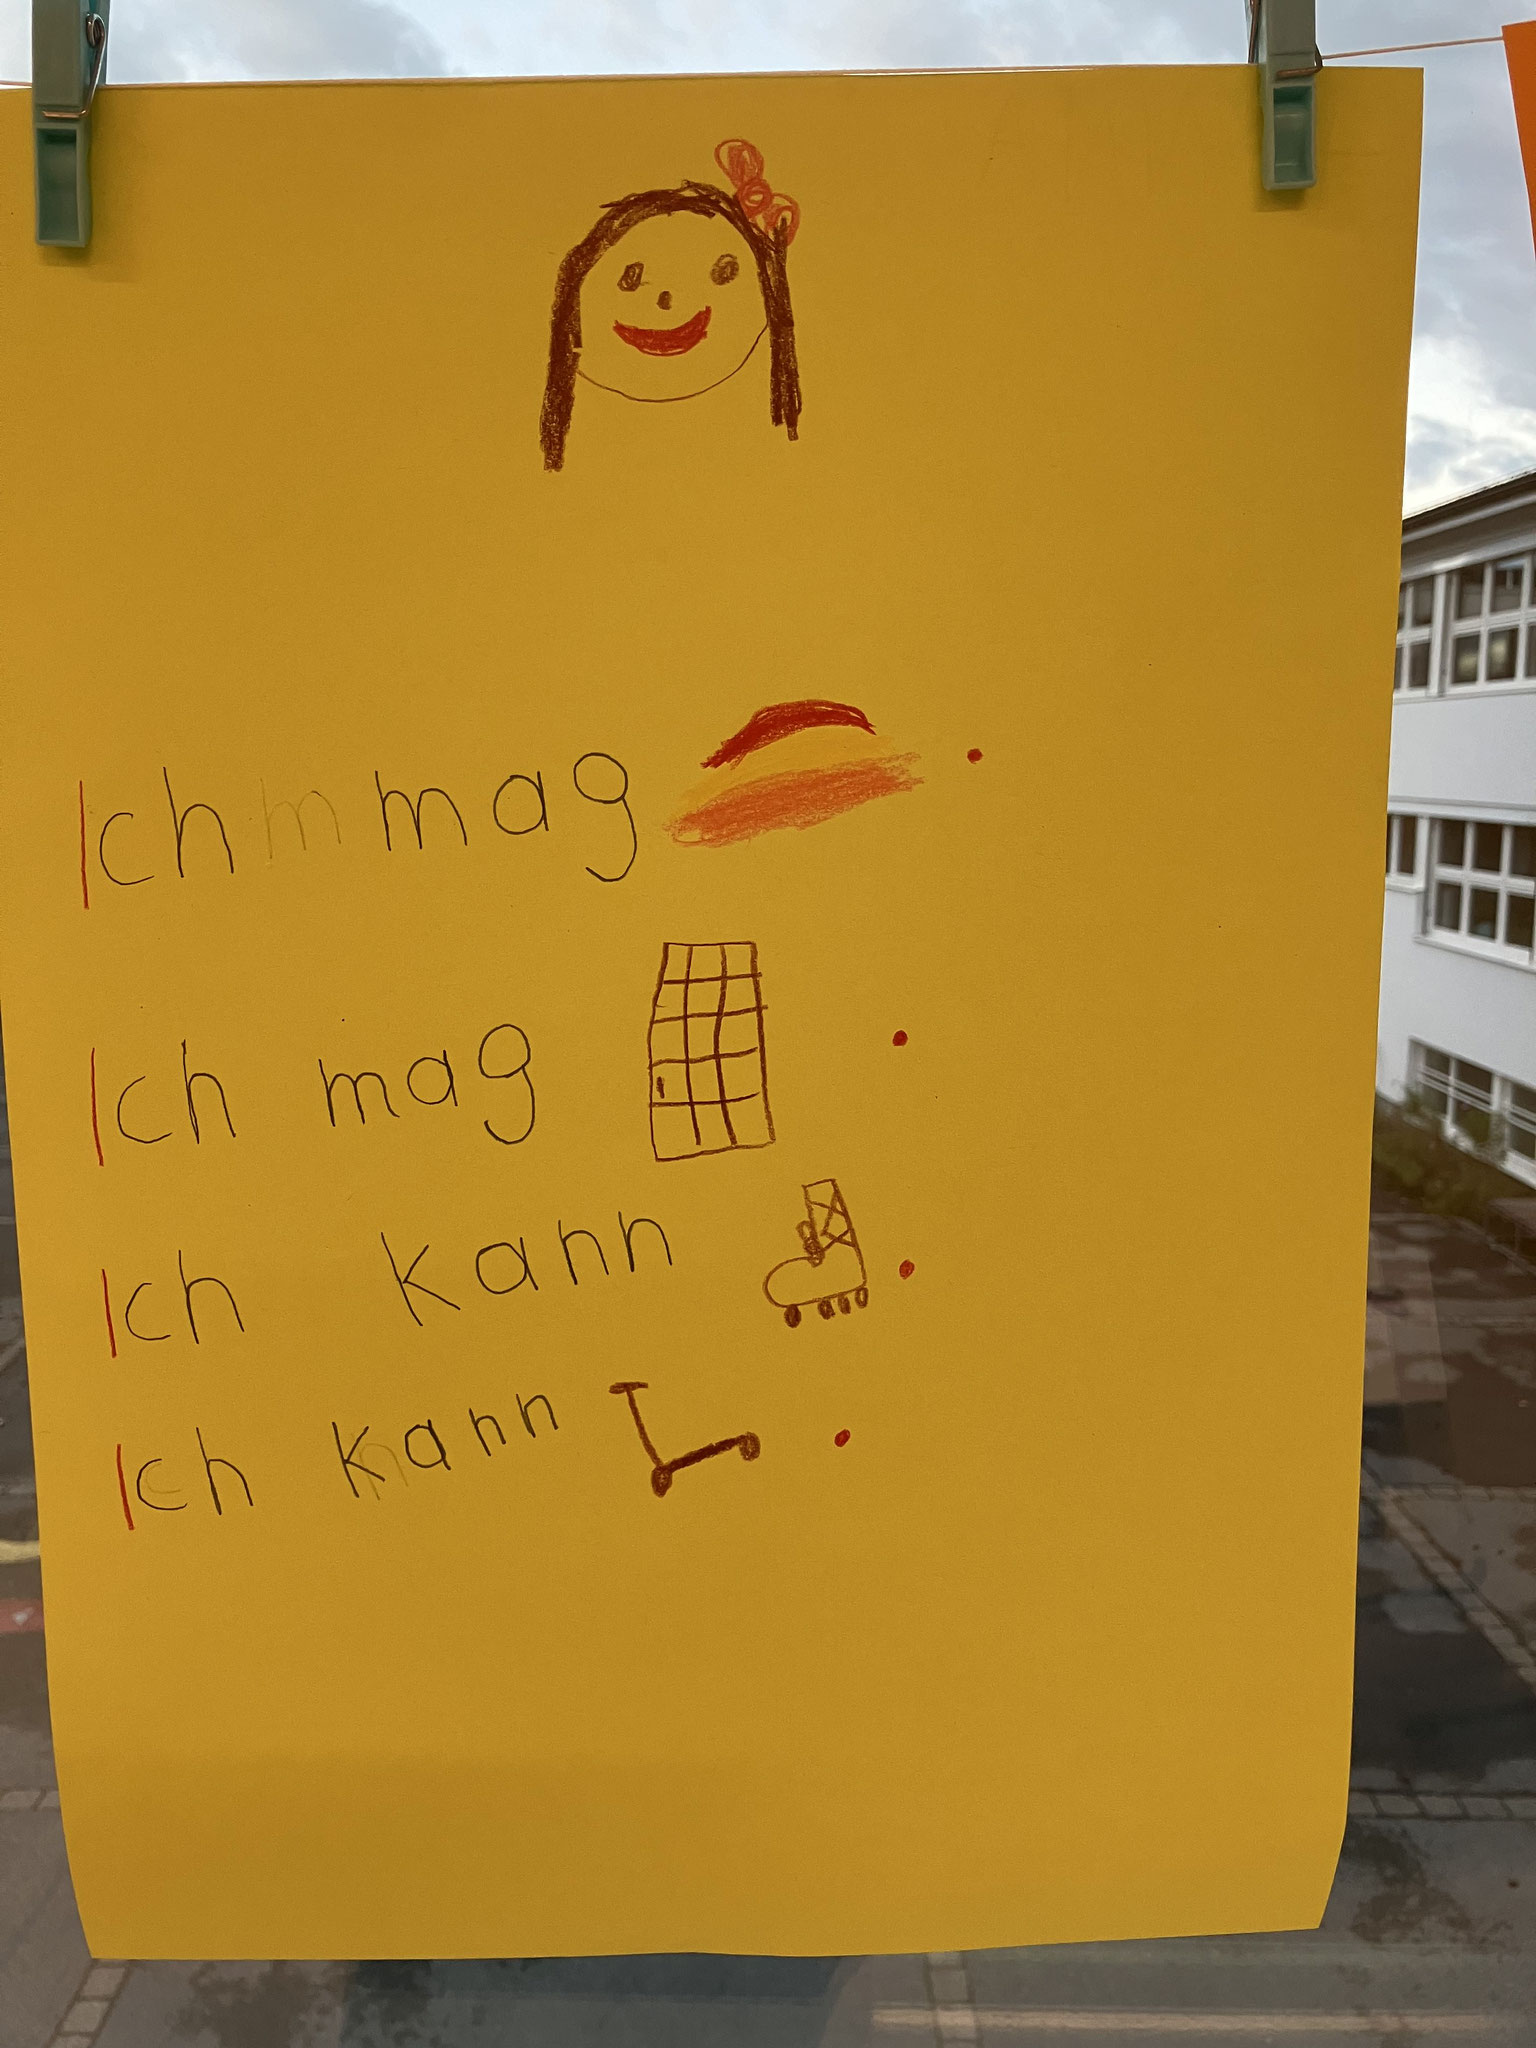 Ich mag .
Ich mag .
Ich kann .
Ich kann .